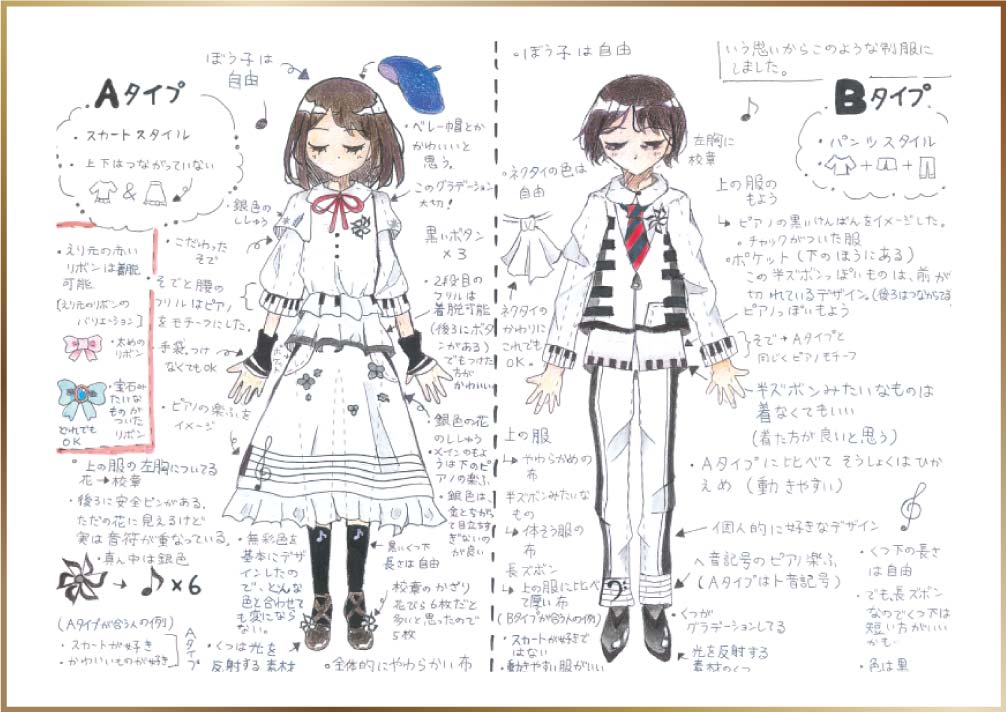 Aタイプ
・スカートスタイル
・上下はつながっていない
&
ぼう子は
自由
・ベレー帽とか
かわいいと
思う。
このグラデーション
大切!
・銀色の
ししゅう
・こだわった
そで
黒いボタン
×3
・えり元の赤い
リボンは着脱
可能。
[えり元のリボンの
バリエーション]
・太めの
リボン
・宝石み
たいな
ものが
ついた
リボン
どれでも
OK
そでと腰の
フリルはピアノ
をモチーフにした。
・2段目の
フリルは
着脱可能
(後ろにボタ
ンがある)
でもつけた
方が
かわいい
手袋。つけ
なくてもOK
・ピアノの楽ふを
イメージ
・銀色の花
のししゅう
・メインのもよ
うは下のピ
アノの楽ふ。
・銀色は、
金とちがっ
て目立ちす
ぎないの
が良い
・上の服の左胸についてる
花→校章
・後ろに安全ピンがある。
ただの花に見えるけど
実は音符が重なっている。
・真ん中は銀色
→♪×6
・無彩色を
基本にデザ
インしたの
で、どんな
色と合わせて
も変になら
ない。
・黒いくつ下
長さは自由
校章のかざり
花びら6枚だと
多いと思ったので
5枚
(Aタイプが合う人の例)
・スカートが好き
・かわいいものが好き
Aタイプ
・くつは光を
反射する素材
・全体的にやわらかい布
・ぼう子は自由
いう思いからこのような制服に
しました。
Bタイプ
・パンツスタイル
+ +
左胸に
校章
・ネクタイの色は
自由
上の服の
もよう
→ピアノの黒いけんばんをイメージした。
・チャックがついた服
・ポケット(下のほうにある)
この半ズボンっぽいものは、前が
切れているデザイン。(後ろはつながってる)
ピアノっぽいもよう
ネクタイの
かわりに
これでも
OK。
そで→Aタイプと
同じくピアノモチーフ
半ズボンみたいなものは
着なくてもいい
(着た方が良いと思う)
・Aタイプに比べてそうしょくはひか
えめ(動きやすい)
上の服
→やわらかめの
布
半ズボンみたいな
もの
→体そう服の
布
長ズボン
→上の服に比べ
て厚い布
個人的に好きなデザイン
ヘ音記号のピアノ楽ふ。
(Aタイプはト音記号)
・くつ下の長さ
は自由
・でも、長ズボン
なのでくつ下は
短い方がいい
かも…
・色は黒
(Bタイプが合う人の例)
・スカートが好きで
はない
・動きやすい服がいい
・くつが
グラデーションしてる
光を反射する
素材のくつ